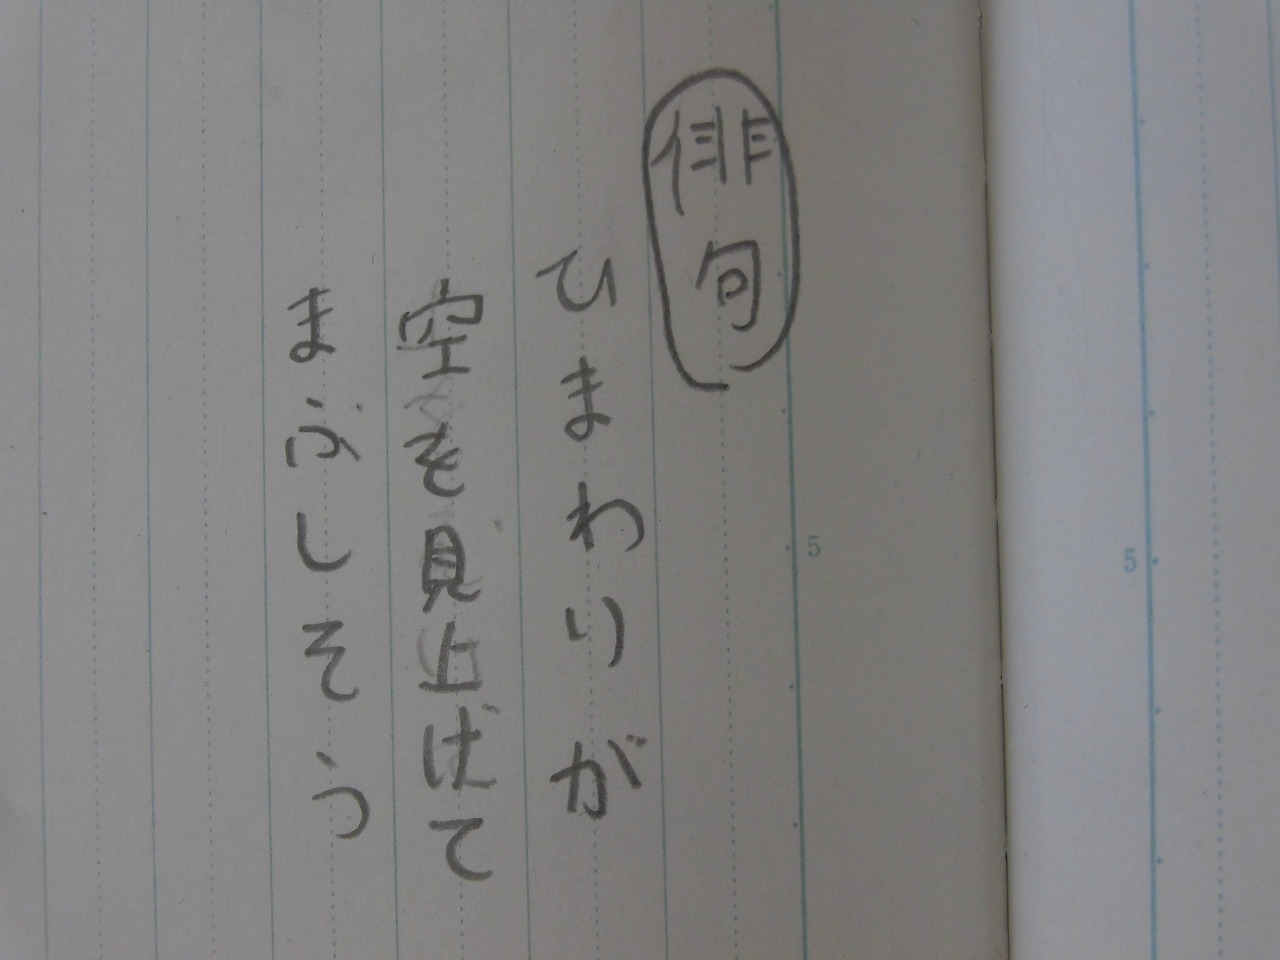 俳句
ひまわりが
空を見上げて
まぶしそう
5
5